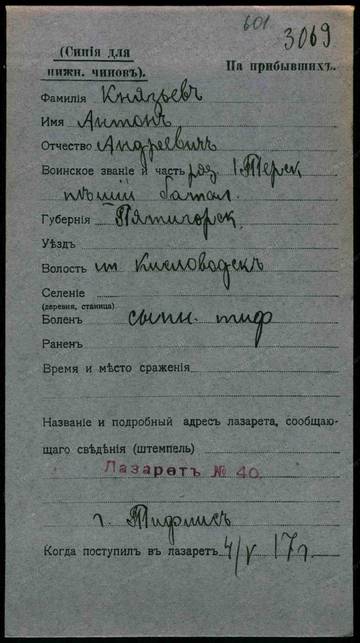 601
3069
(Синія для нижн. чиновъ).
На прибывшихъ.
Фамилія Князьевъ
Имя Антонъ
Отчество Андреевичъ
Воинское званіе и часть ряд. 1 Терск
пѣшій батал.
Губернія Пятигорск.
Уѣздъ
Волость ст Кисловодскъ
Селеніе
(деревня, станица)
Боленъ сыпн. тиф
Раненъ
Время и мѣсто сраженія
Названіе и подробный адресъ лазарета, сообщаю-
щаго свѣдѣнія (штемпель)
Лазаретъ № 40.
г. Тифлисъ
Когда поступилъ въ лазаретъ 4/V 17 г.